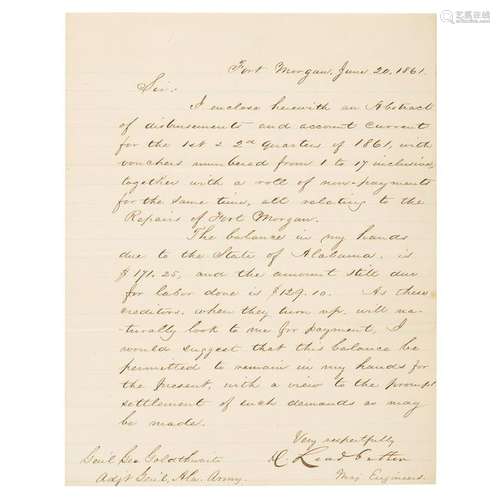 Fort Morgan, June 20, 1861.
Sir:
I enclose herewith an Abstract
of disbursements and account current
for the 1st & 2d quarters of 1861, with
vouchers numbered from 1 to 17 inclusive,
together with a roll of non-payments
for the same time, all relating to the
Repairs of Fort Morgan.
The balance in my hands
due to the State of Alabama, is
$171.25, and the amount still due
for labor done is $129.10. As these
creditors, when they turn up, will na-
turally look to me for payment, I
would suggest that this balance be
permitted to remain in my hands for
the present, with a view to the prompt
settlement of such demands as may
be made.
Very respectfully
D. Leadbetter
Maj Engineers.
Genl. Geo Goldthwaite
Adjt Genl, Ala. Army.